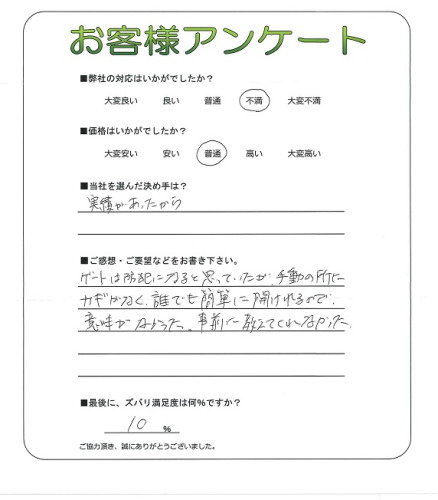 お客様アンケート
■弊社の対応はいかがでしたか？
大変良い 良い 普通 不満 大変不満
■価格はいかがでしたか？
大変安い 安い 普通 高い 大変高い
■当社を選んだ決め手は？
実績があったから
■ご感想・ご要望などをお書き下さい。
ゲートは防犯になると思っていたが、手動の所に
カギがなく、誰でも簡単に開けれるので、
意味がなかった。事前に教えてくれなかった。
■最後に、ズバリ満足度は何％ですか？
10 ％
ご協力頂き、誠にありがとうございました。